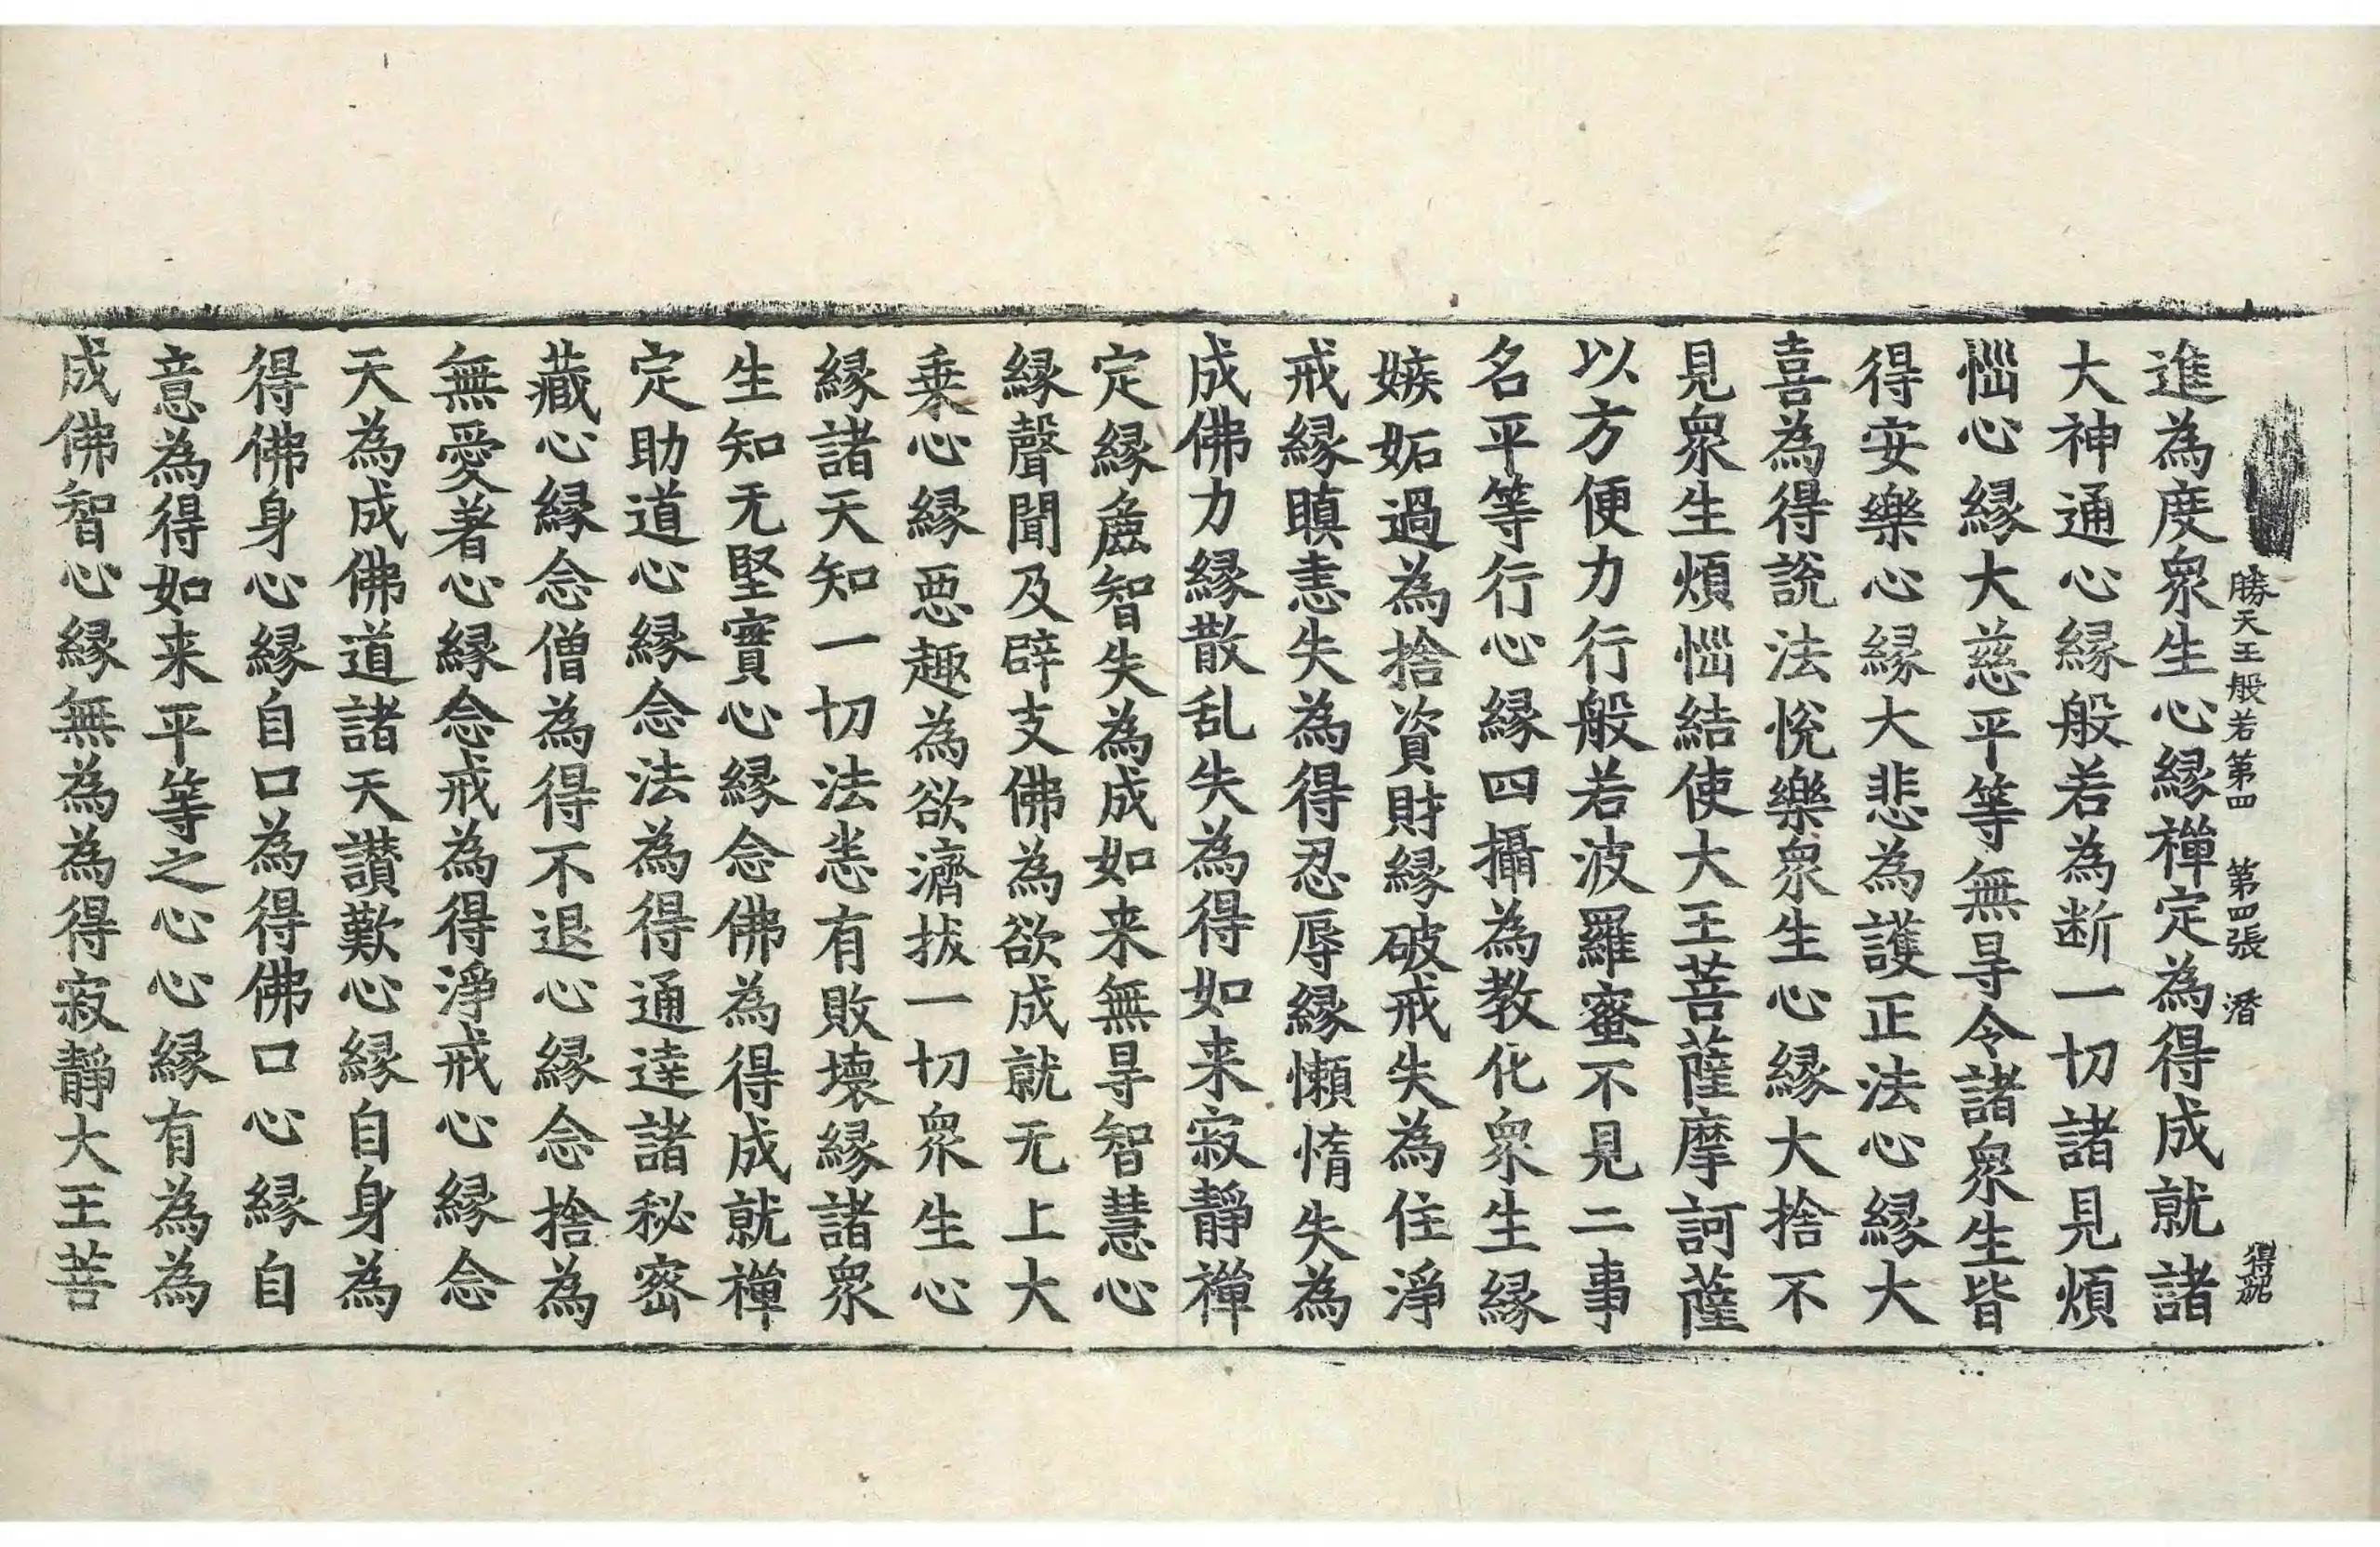 勝天王般若第四　第四張　潛
得紹
進為度衆生心縁禪定為得成就諸
大神通心縁般若為断一切諸見煩
惱心縁大慈平等無㝵令諸衆生皆
得安樂心縁大悲為護正法心縁大
喜為得説法悅樂衆生心縁大捨不
見衆生煩惱結使大王菩薩摩訶薩
以方便力行般若波羅蜜不見二事
名平等行心縁四攝為教化衆生縁
嫉妬過為捨資財縁破戒失為住淨
戒縁瞋恚失為得忍辱縁懶惰失為
成佛力縁散乱失為得如来寂靜禪
定縁麁智失為成如来無㝵智慧心
縁聲聞及辟支佛為欲成就无上大
乗心縁惡趣為欲濟拔一切衆生心
縁諸天知一切法恙有敗壞縁諸衆
生知无堅實心縁念佛為得成就禪
定助道心縁念法為得通達諸秘密
藏心縁念僧為得不退心縁念捨為
無愛著心縁念戒為得淨戒心縁念
天為成佛道諸天讃歎心縁自身為
得佛身心縁自口為得佛口心縁自
意為得如来平等之心心縁有為為
成佛智心縁無為為得寂靜大王菩